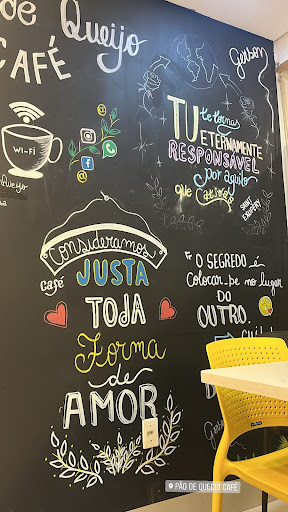 de Queijo
CAFÉ
Gerson
WI-FI
Queijo
TU te tornas
ETERNAMENTE
RESPONSÁVEL
por aquilo
que Cativas
SAINT EXUPÉRY
Consideramos
JUSTA
TODA
Forma
de
AMOR
Café
"O SEGREDO é
Colocar-se no lugar
DO
OUTRO.
PÃO DE QUEIJO CAFÉ